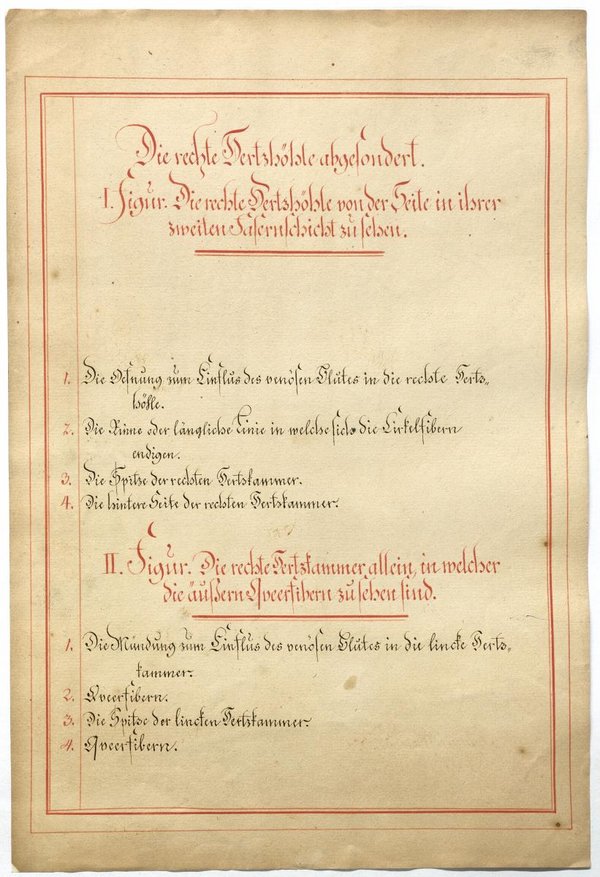 Die rechte Hertzhöhle abgesondert.
I. Figur. Die rechte Hertshöhle von der Seite in ihrer
zweiten Fasernschicht zu sehen.
1. Die Oefnung zum Einflus des venösen Blutes in die rechte Herts-
höhle.
2. Die Rinne oder längliche Linie in welche sich die Cirkelfibern
endigen.
3. Die Spitze der rechten Hertskammer.
4. Die hintere Seite der rechten Hertskammer.
II. Figur. Die rechte Hertzkammer allein, in welcher
die äußern Qveerfibern zu sehen sind.
1. Die Mündung zum Einflus des venösen Blutes in die lincke Herts-
kammer.
2. Qveerfibern.
3. Die Spitze der lincken Hertzkammer
4. Qveerfibern.